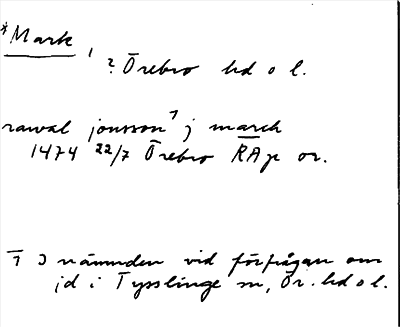 *Mark,
? Örebro hd o l.
rawal jonsson ꜆ j march
1474 22/7 Örebro RAp or.
꜆ I nämnden vid förfrågan om
jd i Tysslinge sn, Ör. hd o l.